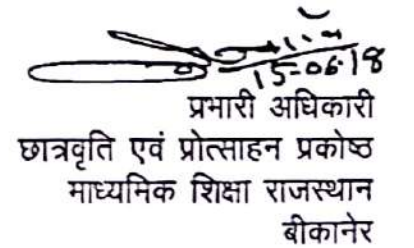 15-06-18
प्रभारी अधिकारी
छात्रवृति एवं प्रोत्साहन प्रकोष्ठ
माध्यमिक शिक्षा राजस्थान
बीकानेर